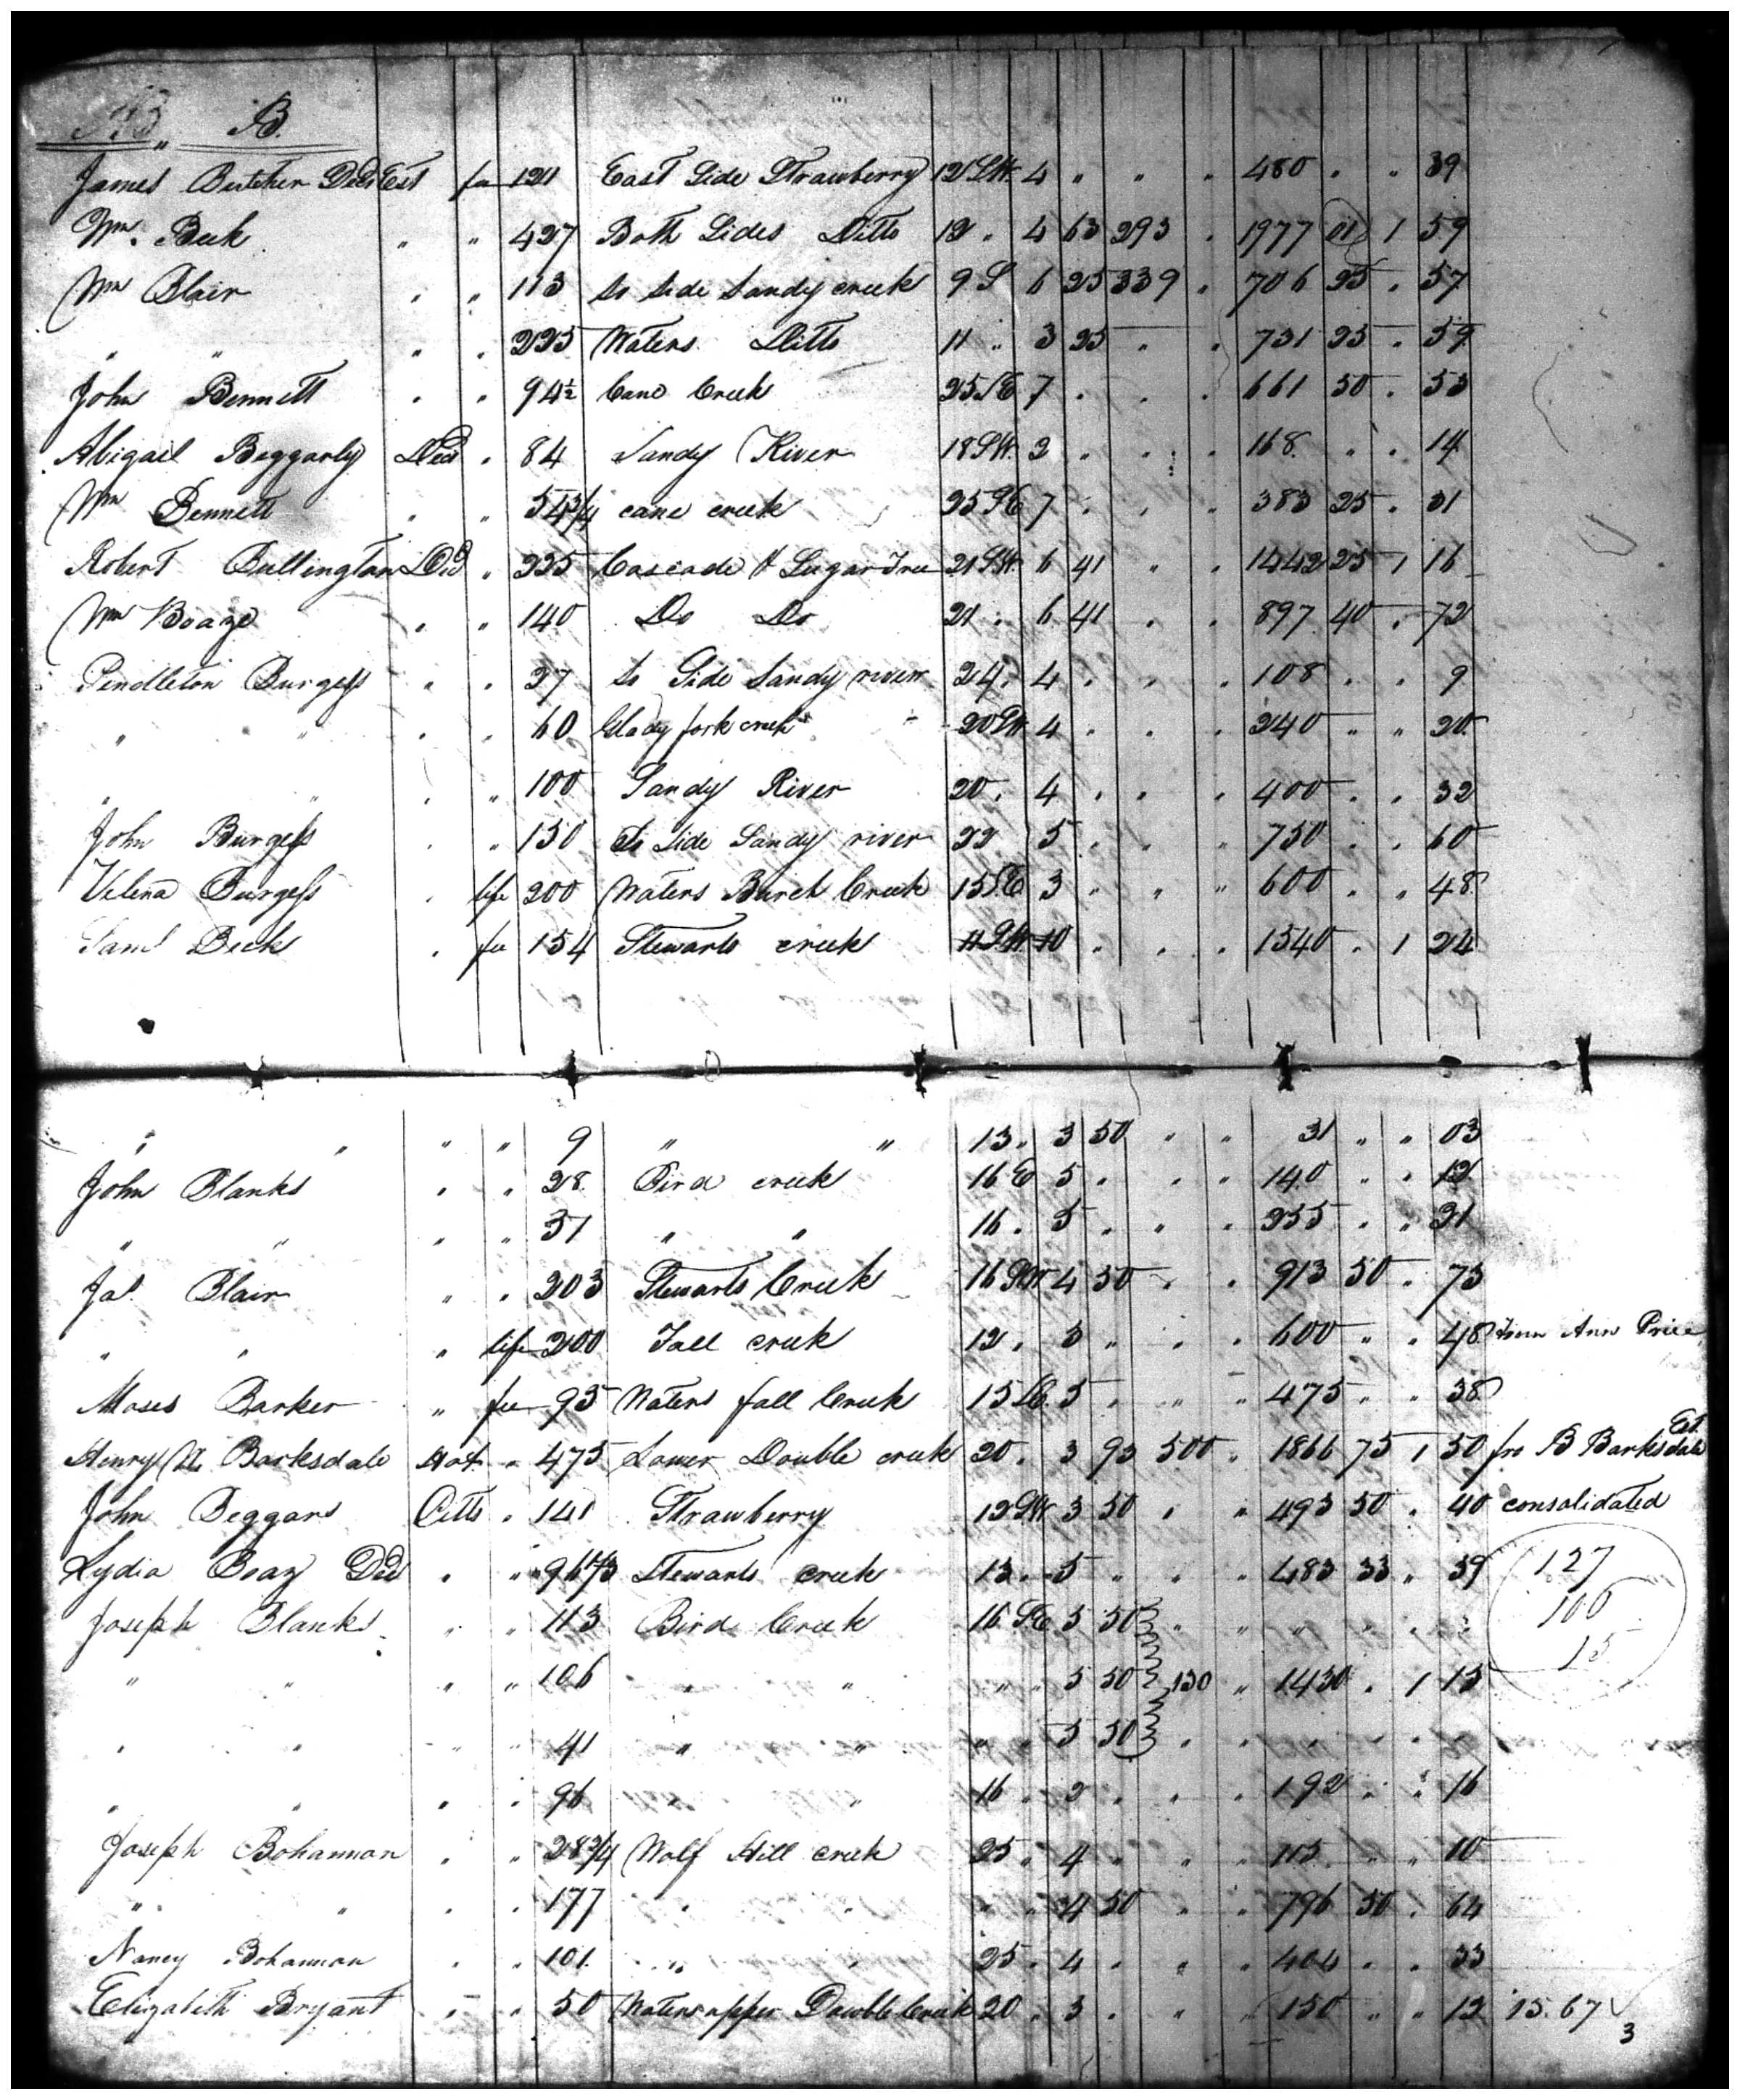 B.
James Butcher Decd Est fee 120 East Side Strawberry 12 SW 4 " " " 480 " " 39
Wm. Beck " " 427 Both Sides Ditto 12 " 4 63 293 " 1977 01 1 59
Wm Blair " " 113 So side Sandy creek 9 S 6 25 339 " 706 25 " 57
" " " " 225 Waters Ditto 11 " 3 25 " " 731 25 " 59
John Bennett " " 94½ Cane Creek 25 SE 7 " " " 661 50 " 53
Abigail Beggarly Decd " 84 Sandy River 18 SW 2 " " " 168 " " 14
Wm Bennett " " 54¾ cane creek 25 SE 7 " " " 383 25 " 31
Robert Bullington Decd " 225 Cascade & Sugar Tree 21 SW 6 41 " " 1442 25 1 16
Wm Boaze " " 140 Do Do 21 " 6 41 " " 897 40 " 72
Pendleton Burgess " " 27 So Side Sandy river 24 " 4 " " " 108 " " 9
" " " " 60 Glady fork creek 20 SW 4 " " " 240 " " 20
" " " " 100 Sandy River 20 " 4 " " " 400 " " 32
John Burgess " " 150 So side Sandy river 22 5 " " " 750 " " 60
Velena Burgess " life 200 Waters Burch Creek 15 SE 3 " " " 600 " " 48
Saml Beck " fee 154 Stewarts creek 11 SW 10 " " " 1540 " 1 24
" " " " 9 " " 13 " 3 50 " " 31 " " 03
John Blanks " " 28 Bird creek 16 E 5 " " " 140 " " 12
" " " " 51 " " 16 " 5 " " " 255 " " 21
Jas. Blair " " 203 Stewarts Creek 16 SW 4 50 " " 913 50 " 73
" " " life 200 Fall creek 12 " 3 " " " 600 " " 48 from Ann Price
Moses Barker " fee 95 Waters fall Creek 15 SE 5 " " " 475 " " 38
Henry Barksdale Hax " 475 Lower Double creek 20 " 3 93 500 " 1866 75 1 50 fro B Barksdale Est.
John Beggars Pitts " 141 Strawberry 12 SW 3 50 " " 493 50 " 40 consolidated
Lydia Boaz Decd " " 96⅔ Stewarts creek 13 " 5 " " " 483 33 " 39 127
Joseph Blanks " " 113 Bird Creek 16 SE 5 50 " " " " " " 100
" " " " 106 " " " " 5 50 130 " 1430 " 1 15 15
" " " " 41 " " " " 5 50 " " " " " "
" " " " 96 " " 16 " 2 " " " 192 " " 16
Joseph Bohannon " " 28¾ Wolf Hill creek 25 " 4 " " " 115 " " 10
" " " " 177 " " " " 4 50 " " 796 50 " 64
Nancy Bohannon " " 101 " " 25 " 4 " " " 404 " " 33
Elizabeth Bryant " " 50 Waters upper Double Creek 20 " 3 " " " 150 " " 12 15.67
3